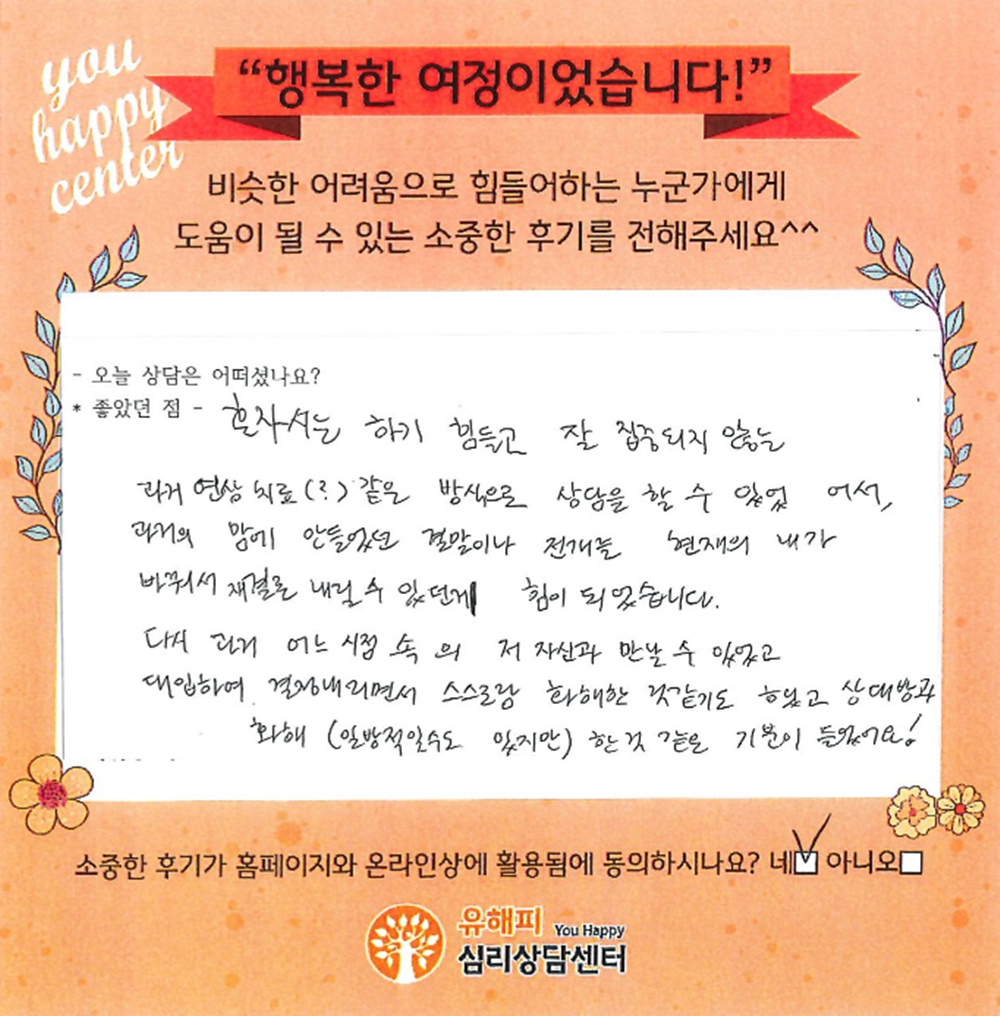 you
happy
center
“행복한 여정이었습니다!”
비슷한 어려움으로 힘들어하는 누군가에게
도움이 될 수 있는 소중한 후기를 전해주세요^^
- 오늘 상담은 어떠셨나요?
* 좋았던 점 - 혼자서는 하기 힘들고 잘 집중되지 않는
과거 연상 치료(?) 같은 방식으로 상담을 할 수 있었 어서,
과거의 맘에 안들었던 결말이나 전개를 현재의 내가
바꿔서 재결론 내릴 수 있던게 힘이 되었습니다.
다시 과거 어느 시점 속 의 저 자신과 만날 수 있었고
대입하여 결정내리면서 스스로랑 화해한 것같기도 하였고 상대방과
화해 (일방적일수도 있지만) 한 것 같은 기분이 들었어요!
소중한 후기가 홈페이지와 온라인상에 활용됨에 동의하시나요? 네☑ 아니오☐
유해피 You Happy
심리상담센터